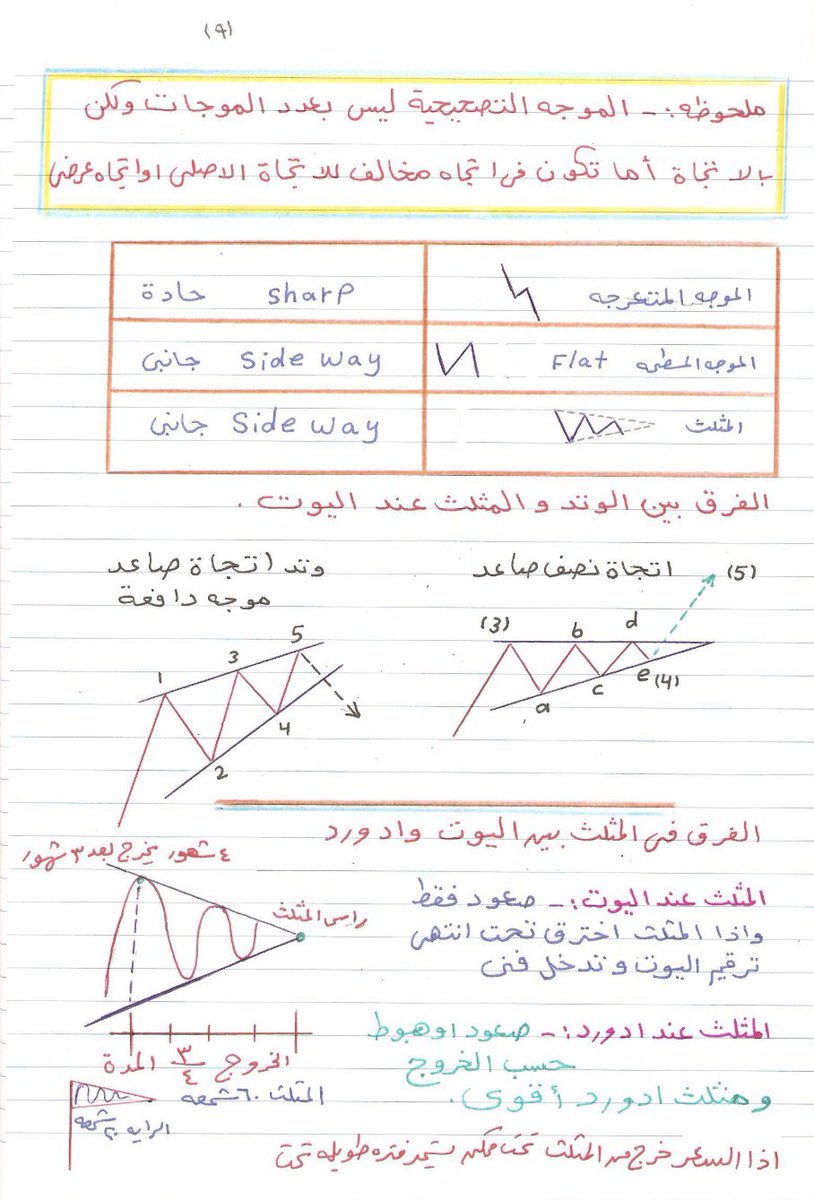 (٩)
ملحوظه :- الموجه التصحيحية ليس بعدد الموجات ولكن
بالاتجاة أما تكون فى اتجاه مخالف للاتجاة الاصلى او اتجاه عرضى
الموجه المتعرجه sharp حادة
الموجه المسطحه Flat Side way جانبى
المثلث Side way جانبى
الفرق بين الوتد والمثلث عند اليوت .
اتجاة نصف صاعد
(5)
(3) b d
a c e (4)
وتد اتجاة صاعد
موجه دافعة
1 3 5
2 4
الفرق فى المثلث بين اليوت وادورد
٤ شهور يخرج بعد ٣ شهور
راس المثلث
المثلث عند اليوت :- صعود فقط
واذا المثلث اخترق تحت انتهى
ترقيم اليوت وندخل فنى
المثلث عند ادورد :- صعود او هبوط
حسب الخروج
ومثلث ادورد أقوى .
الخروج ٣/٤ المدة
المثلث ٦٠ شمعه
الرايه ٢٠ شمعه
اذا السعر خرج من المثلث تحت ممكن يستمر فتره طويله تحت